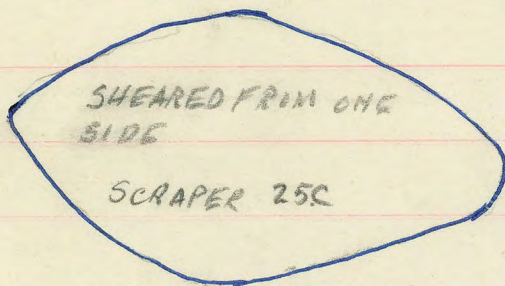 SHEARED FROM ONE
SIDE
SCRAPER 25C